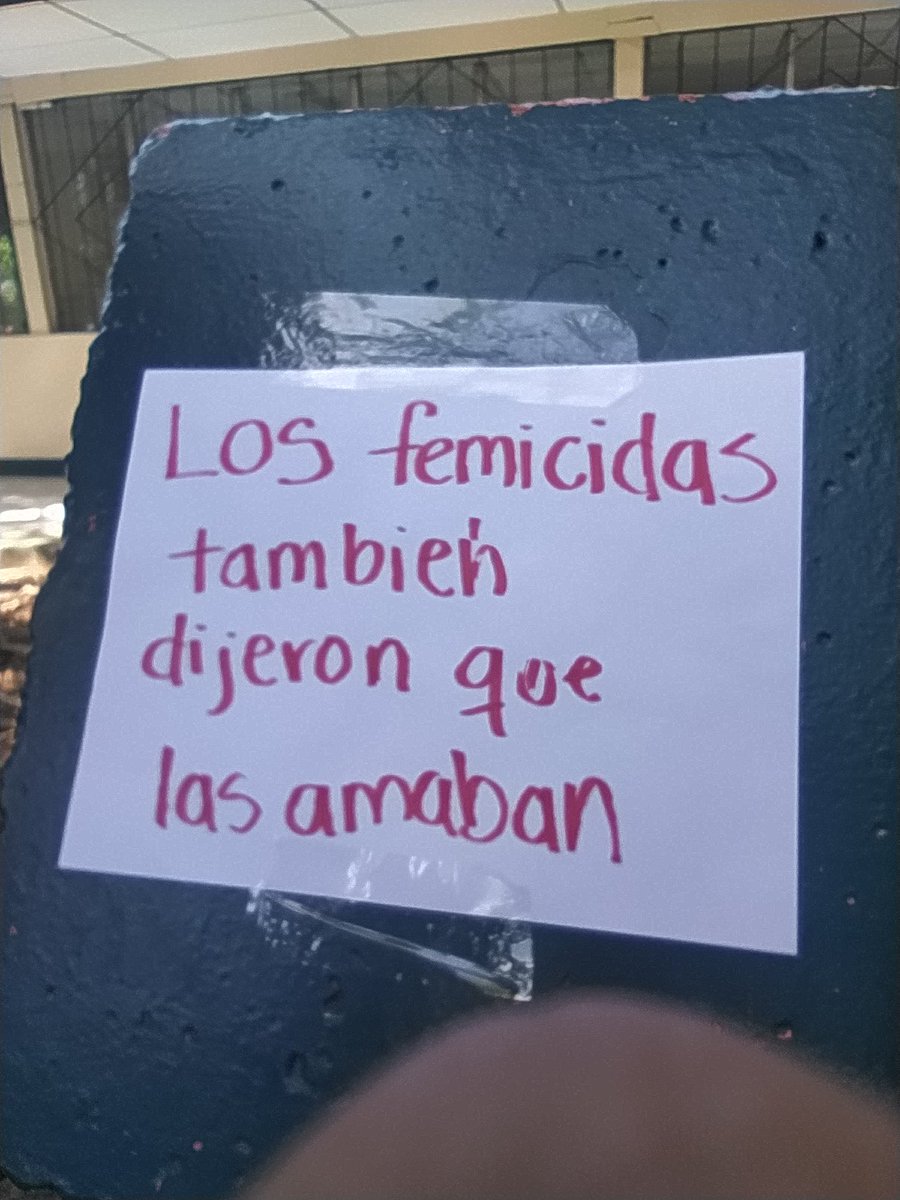 Los femicidas
también
dijeron que
las amaban